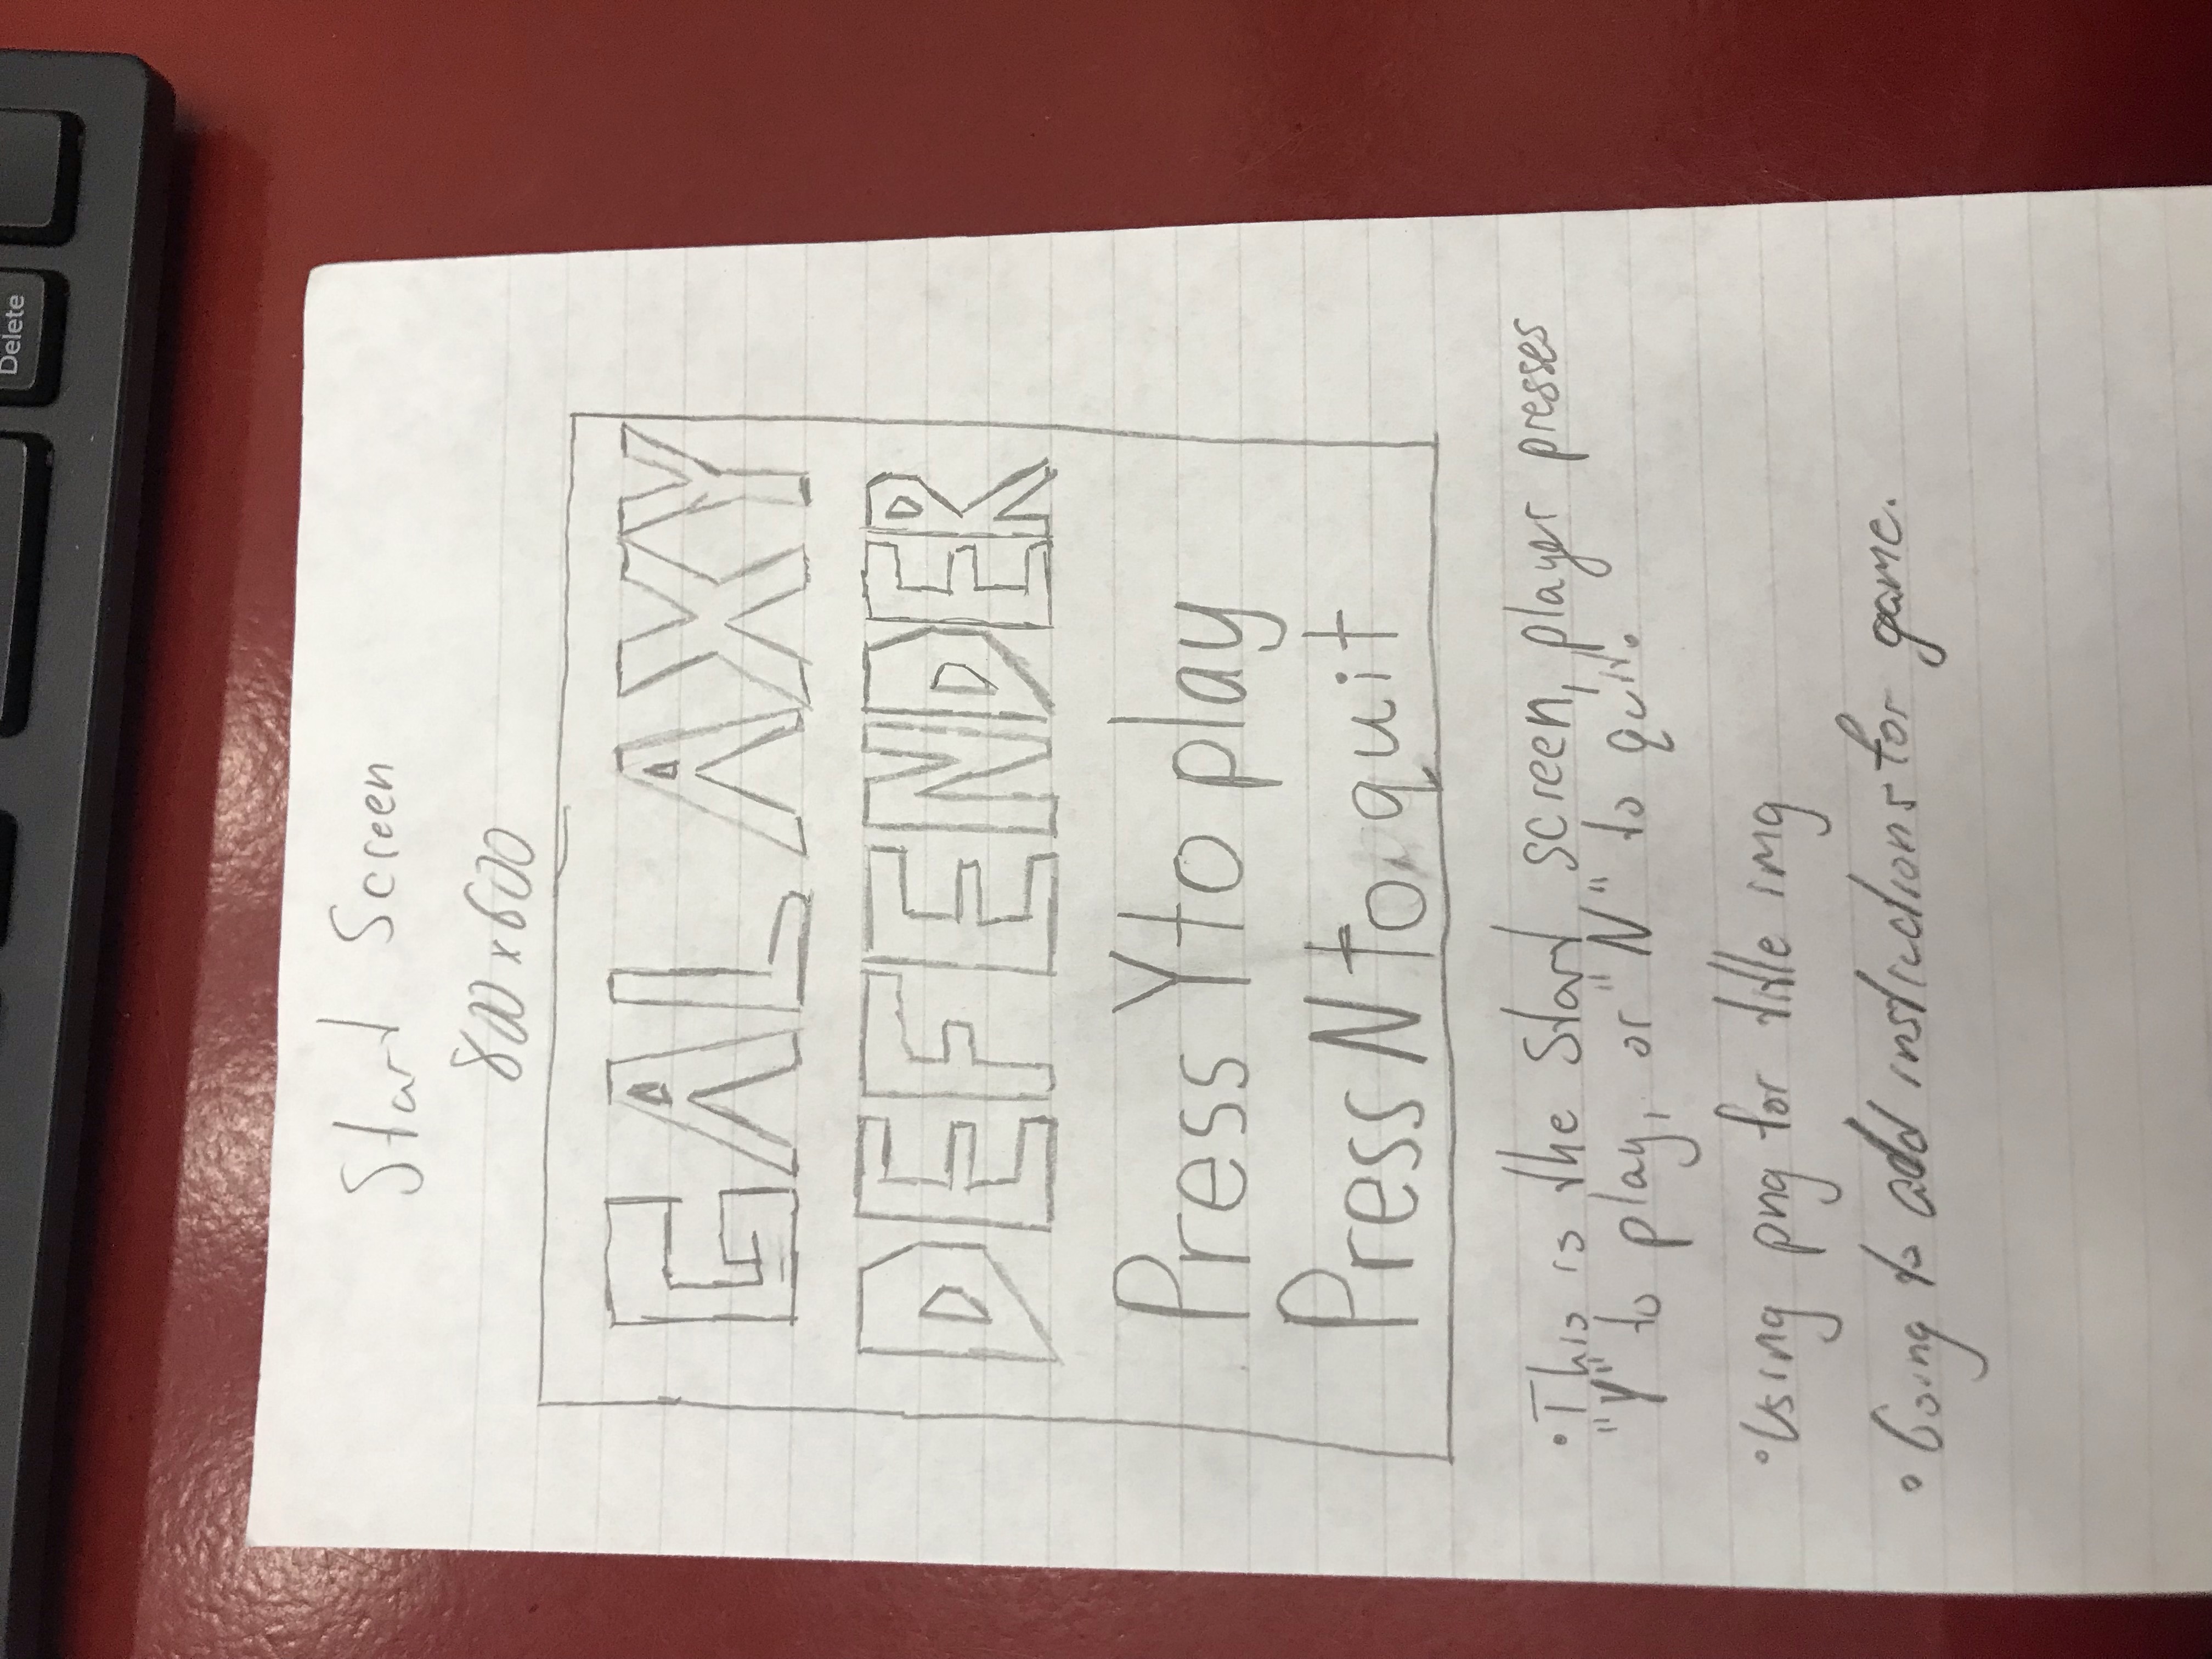 Delete
Start Screen
800x600
GALAXY
DEFENDER
Press Y to play
Press N to quit
•This is the Start screen, player presses
"Y" to play, or "N" to quit.
•Using png for title img
•Going to add instructions for game.